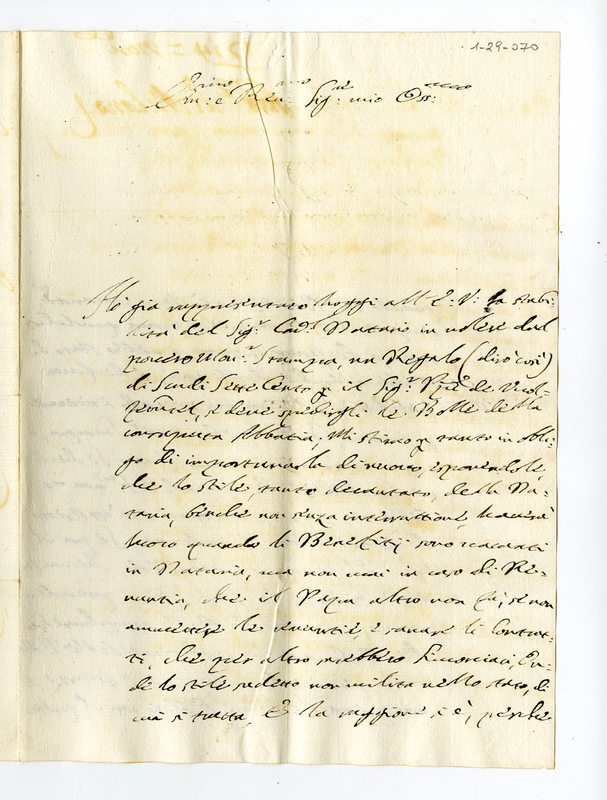 1-29-070
Em:o e Rev:mo Sig:re mio Oss:mo
Hò già rappresentato hoggi all' E. V: la stabi-
lità del Sig:r Card:l Datario in volere dal
povero Mon:r Stampa, un Regalo (dirò così)
di Scudi Sette Cento il Sig:r de
, e deve spedirgli le Bolle della
Abbatia. Mi stimo tanto in obli-
go di importunarla di nuovo, esponendole,
che lo stile tanto decantato, della Da-
taria, benche non senza interruttione,
luoco quando li Beneficij sono vacanti
in Dataria, ma non mai in caso di Re-
nuntia, che il Papa altro non fà, se non
ammettere le renuntie, e sanare li Contrat-
ti, che per altro sarebbero Simoniaci, On-
de lo stile sudetto non milita nello stato, di
cui si tratta, E la raggione si è, perche